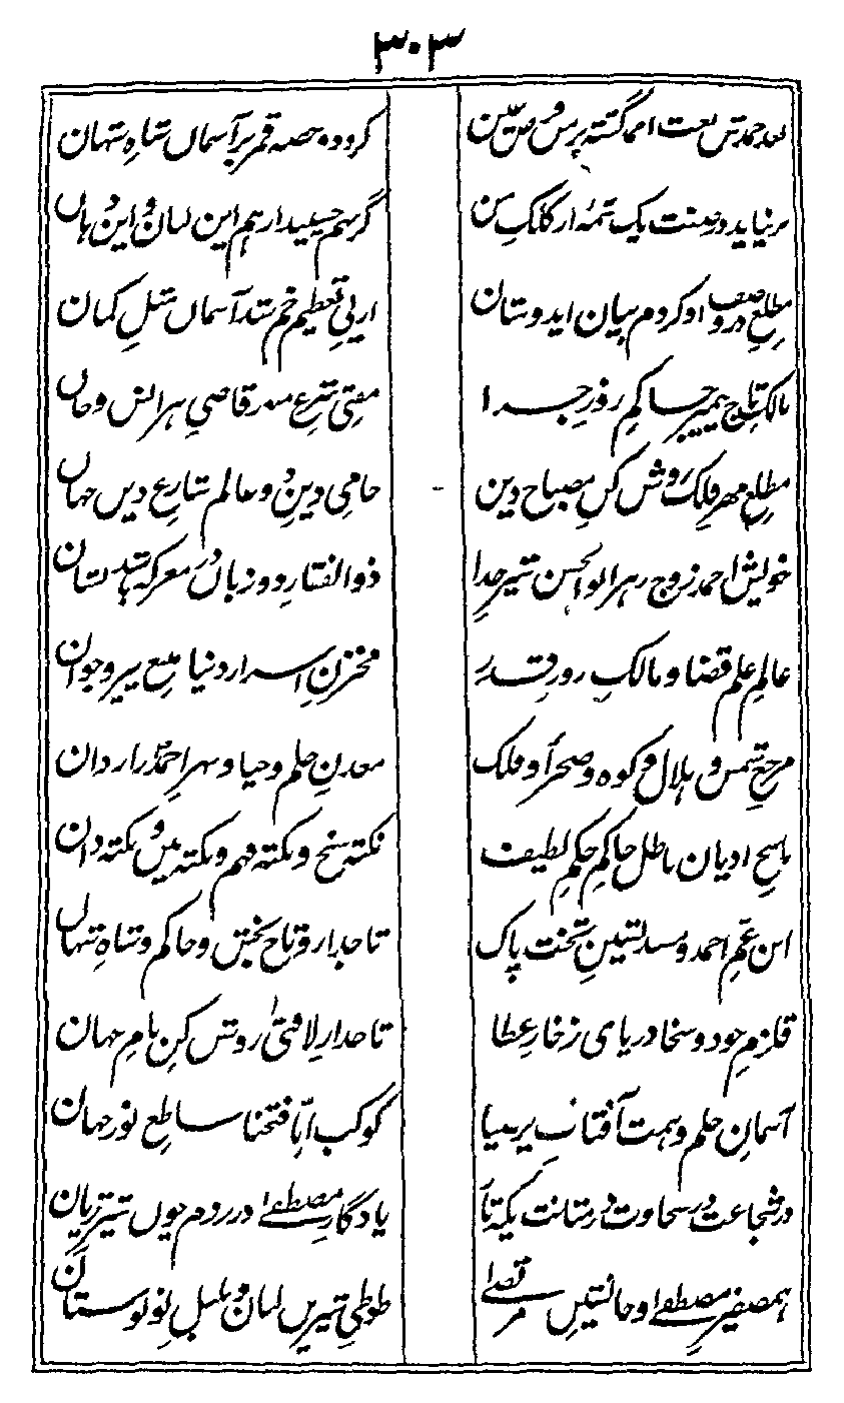 ۳۰۳
بعد حمدش نعت احمد گشته پرس و صیقین کرد دو حصه قمر بر آسمان شاه شهان
برنیاید وصفت یک تمه از کلک من گر بهم چسپید از هم این لسان و این دہاں
مطلعِ در وصف او کردم بیان ای دوستان از پیِ تعظیم خم شد آسمان مثلِ کمان
مالکِ تاج پیمبر حاکمِ روزِ جزا مفتیِ شرعِ قاضیِ ہر انس و جاں
مطلعِ مهرِ فلک روشن کنِ مصباح دین حامیِ دین و عالم شارعِ دیں جہاں
خویش احمد زوج زہرا بوالحسن شیر خدا ذوالفقارِ دو زباں در معرکہ باشد ستان
عالمِ علم قضا و مالکِ روز قدر مخزنِ اسرار دنیا پیر و جوان
مرجعِ شمس و ہلال و کوه و صحرا و فلک معدنِ حلم و حیا و سرِ احمد رازدان
ناسخِ ادیان باطل حاکمِ حکمِ لطیف نکته سنج و نکته فهم و نکته بیں و نکته دان
ابن عمِ احمد و مسند نشینِ تخت پاک تاجدار و تاج بخش و حاکم و شاہِ شہاں
قلزمِ جود و سخا دریای زخارِ عطا تاجدارِ لافتیٰ روشن کنِ بامِ جہان
آسمانِ حلم و ہمت آفتابِ پرضیا کوکبِ انّا فتحنا ساطعِ نور جہان
در شجاعت در سخاوت در متانت یکتا یادگارِ مصطفےٰ در رزم چوں شیرِ ژیان
ہمصفیرِ مصطفےٰ و جانشینِ مرتضےٰ طوطیِ شیریں لسان و بلبلِ بوستان